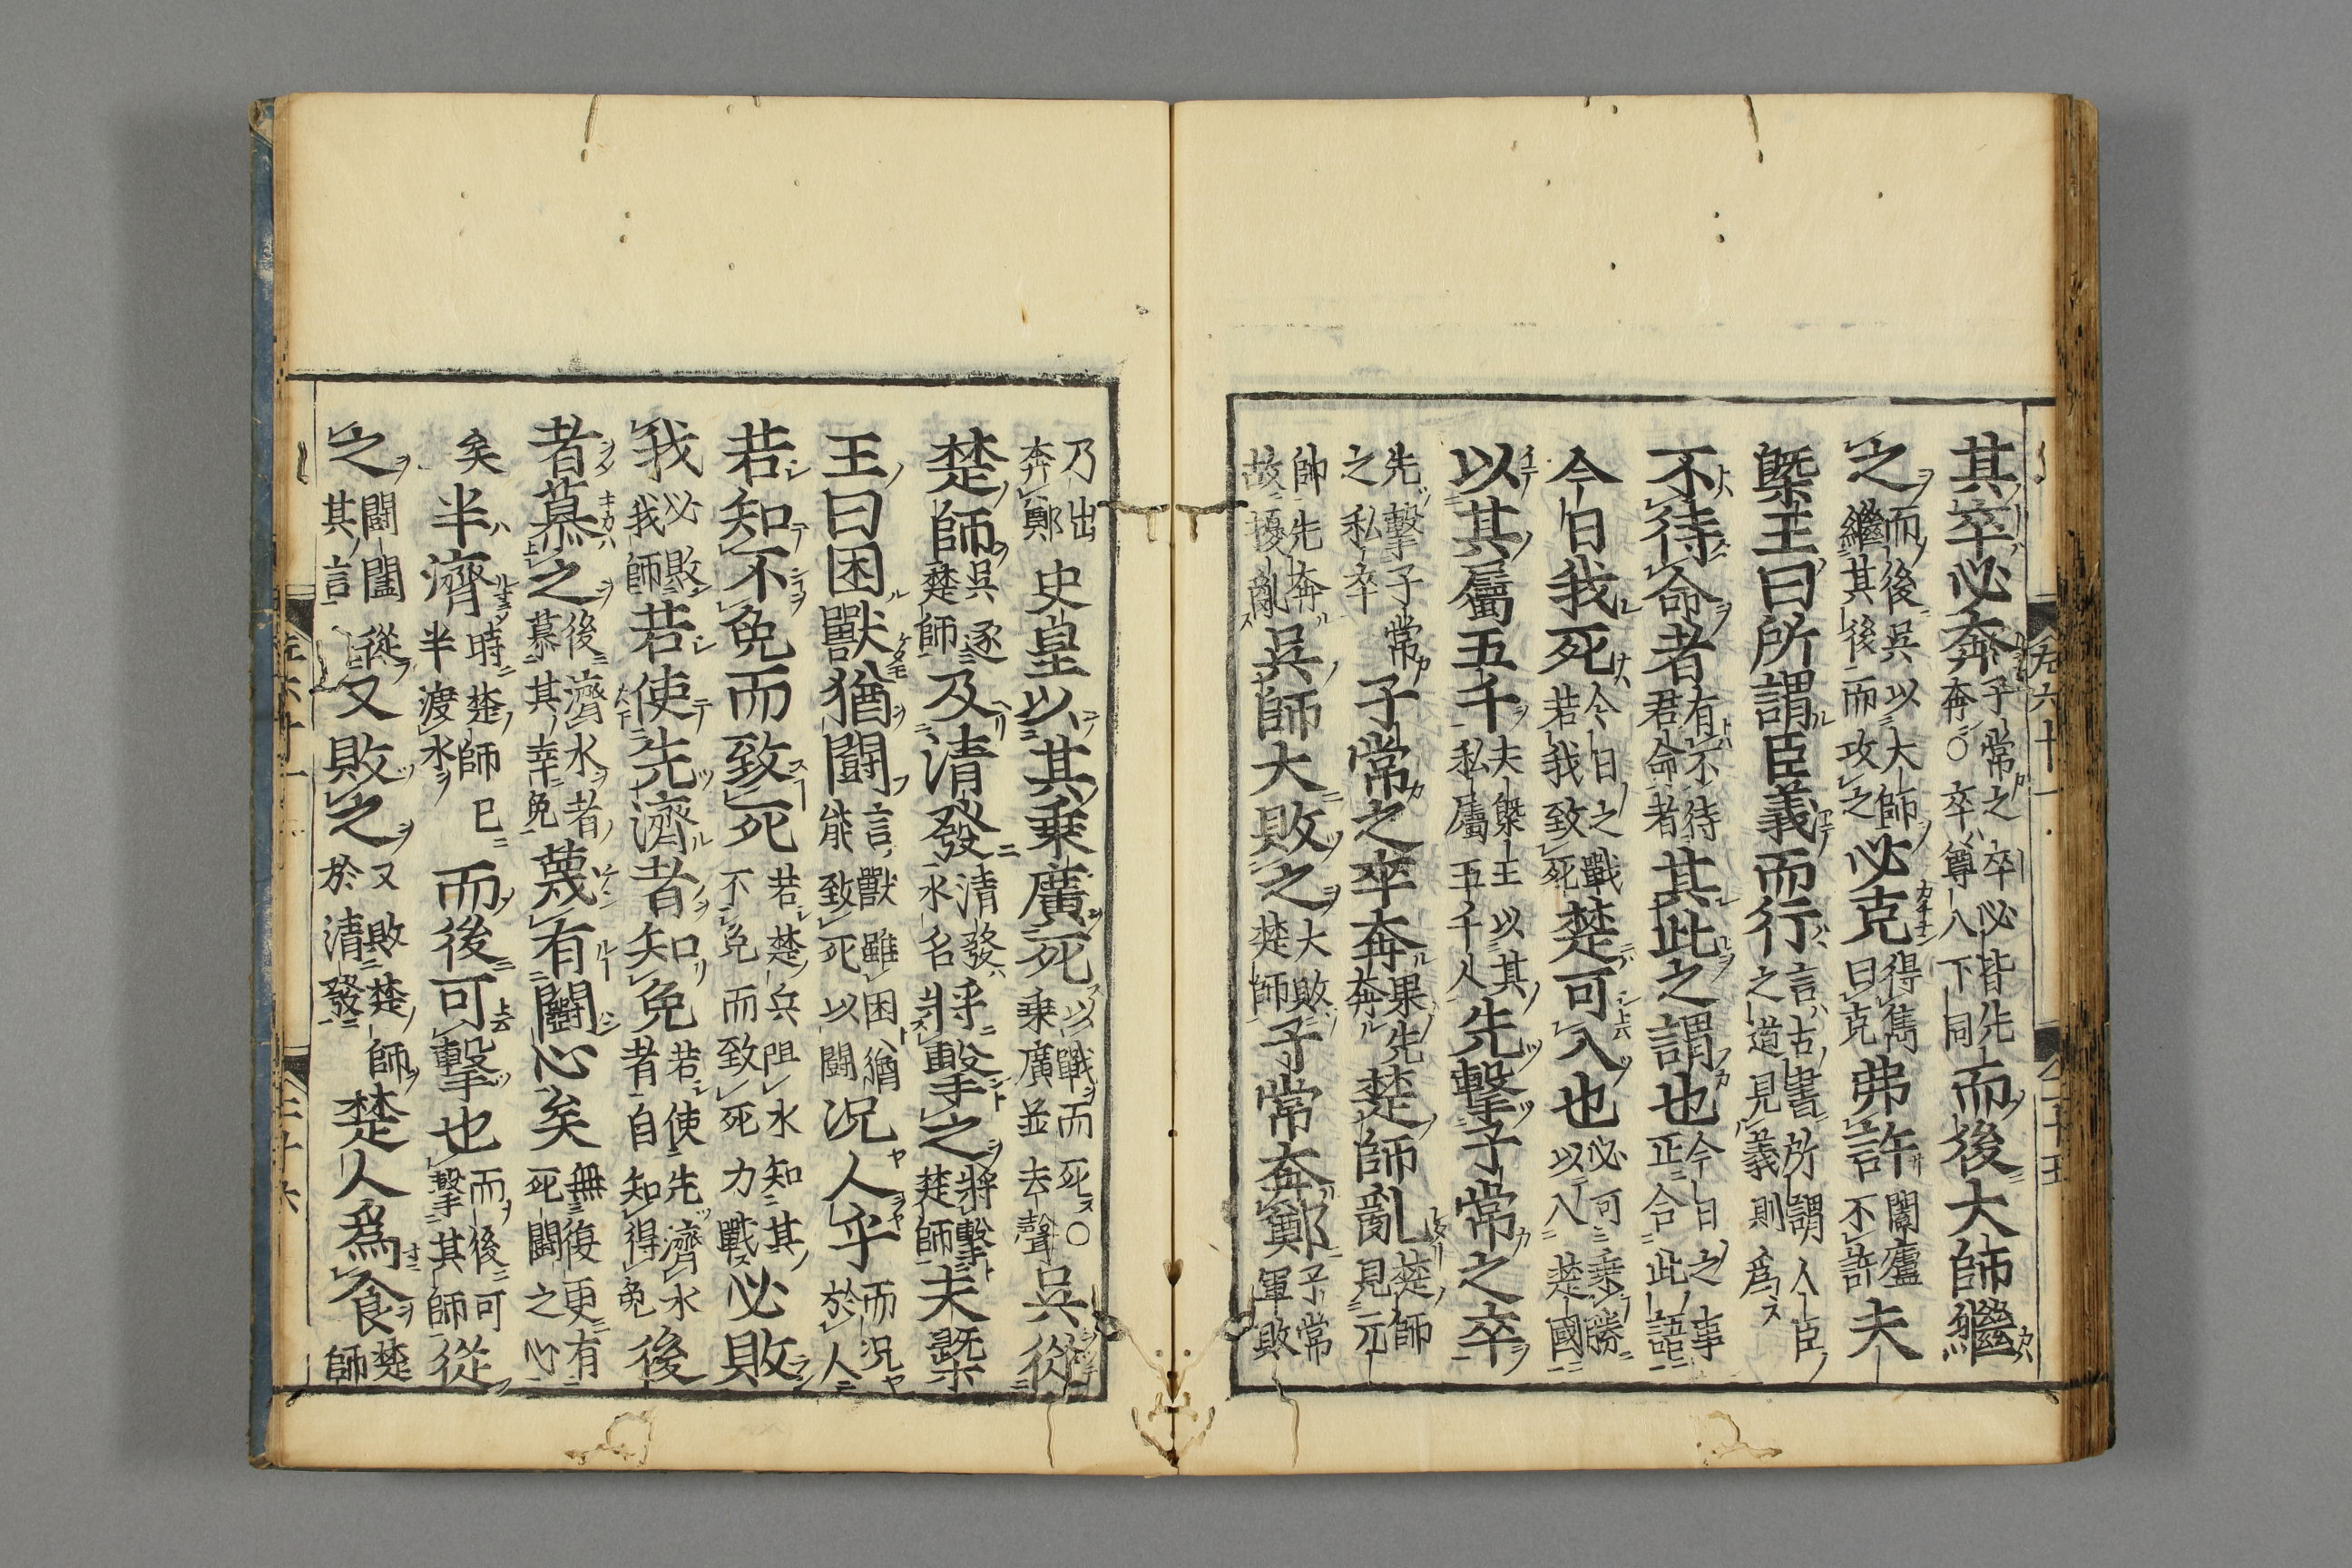 其卒必奔子常之卒必皆先奔○卒尊入下同而後大師繼
之而後吳以大師繼其後而攻之必克得雋曰克弗許闔廬不許夫
槩王曰所謂臣義而行言古書所謂人臣之道見義則爲
不待命者有不待君命者其此之謂也今日之事正合此語
今日我死今日之戰若我致死楚可入也必可乗勝以入楚國
以其屬五千夫槩王以其私屬五千人先擊子常之卒
先擊子常之私卒子常之卒奔果先奔楚師亂楚師見元
帥先奔故擾亂吳師大敗之大敗楚師子常奔鄭子常軍敗
乃出奔鄭史皇以其乗廣死以戰而死○乗廣並去聲吳從
楚師吳逐楚師及清發清發水名將擊之將擊楚師夫槩
王曰困獸猶鬭言獸雖困猶能致死以鬭况人乎而况於人
若知不免而致死若楚兵阻水知其不免而致死力戰必敗
我必敗我師若使先濟者知免若使先濟水者自知得免後
者慕之後濟水者慕其幸免蔑有鬭心矣無復更有死鬭之心
矣半濟時楚師已半渡水而後可擊也而後可擊其師從
之闔閭從其言又敗之又敗楚師於清發楚人爲食楚師